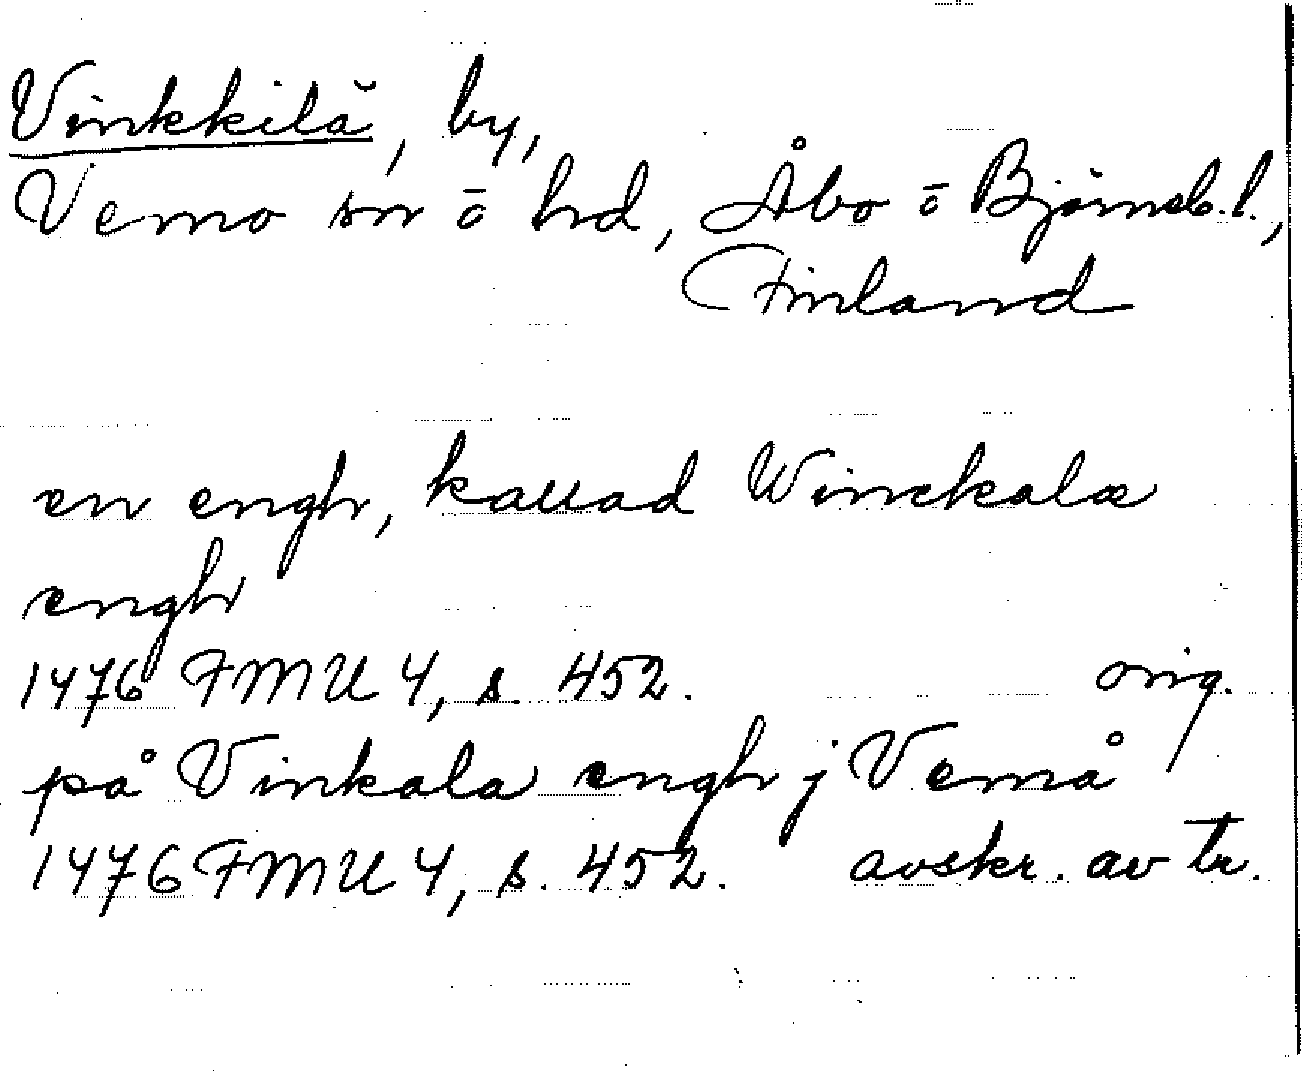 Vinkkilä, by,
Vemo sn ō hd, Åbo ō Björneb. l.,
Finland
en engh, kallad Winckala
engh
1476 FMU 4, s. 452. orig.
på Vinkala engh j Vemå
1476 FMU 4, s. 452. avskr. av tr.